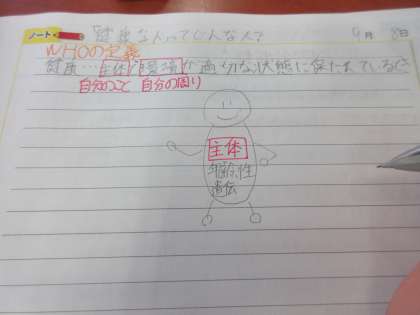 ノート 「健康な人ってどんな人？ 9月 8日
WHOの定義
健康…主体と環境が適切な状態に保たれていること
自分のこと 自分の周り
主体
年齢、性
遺伝